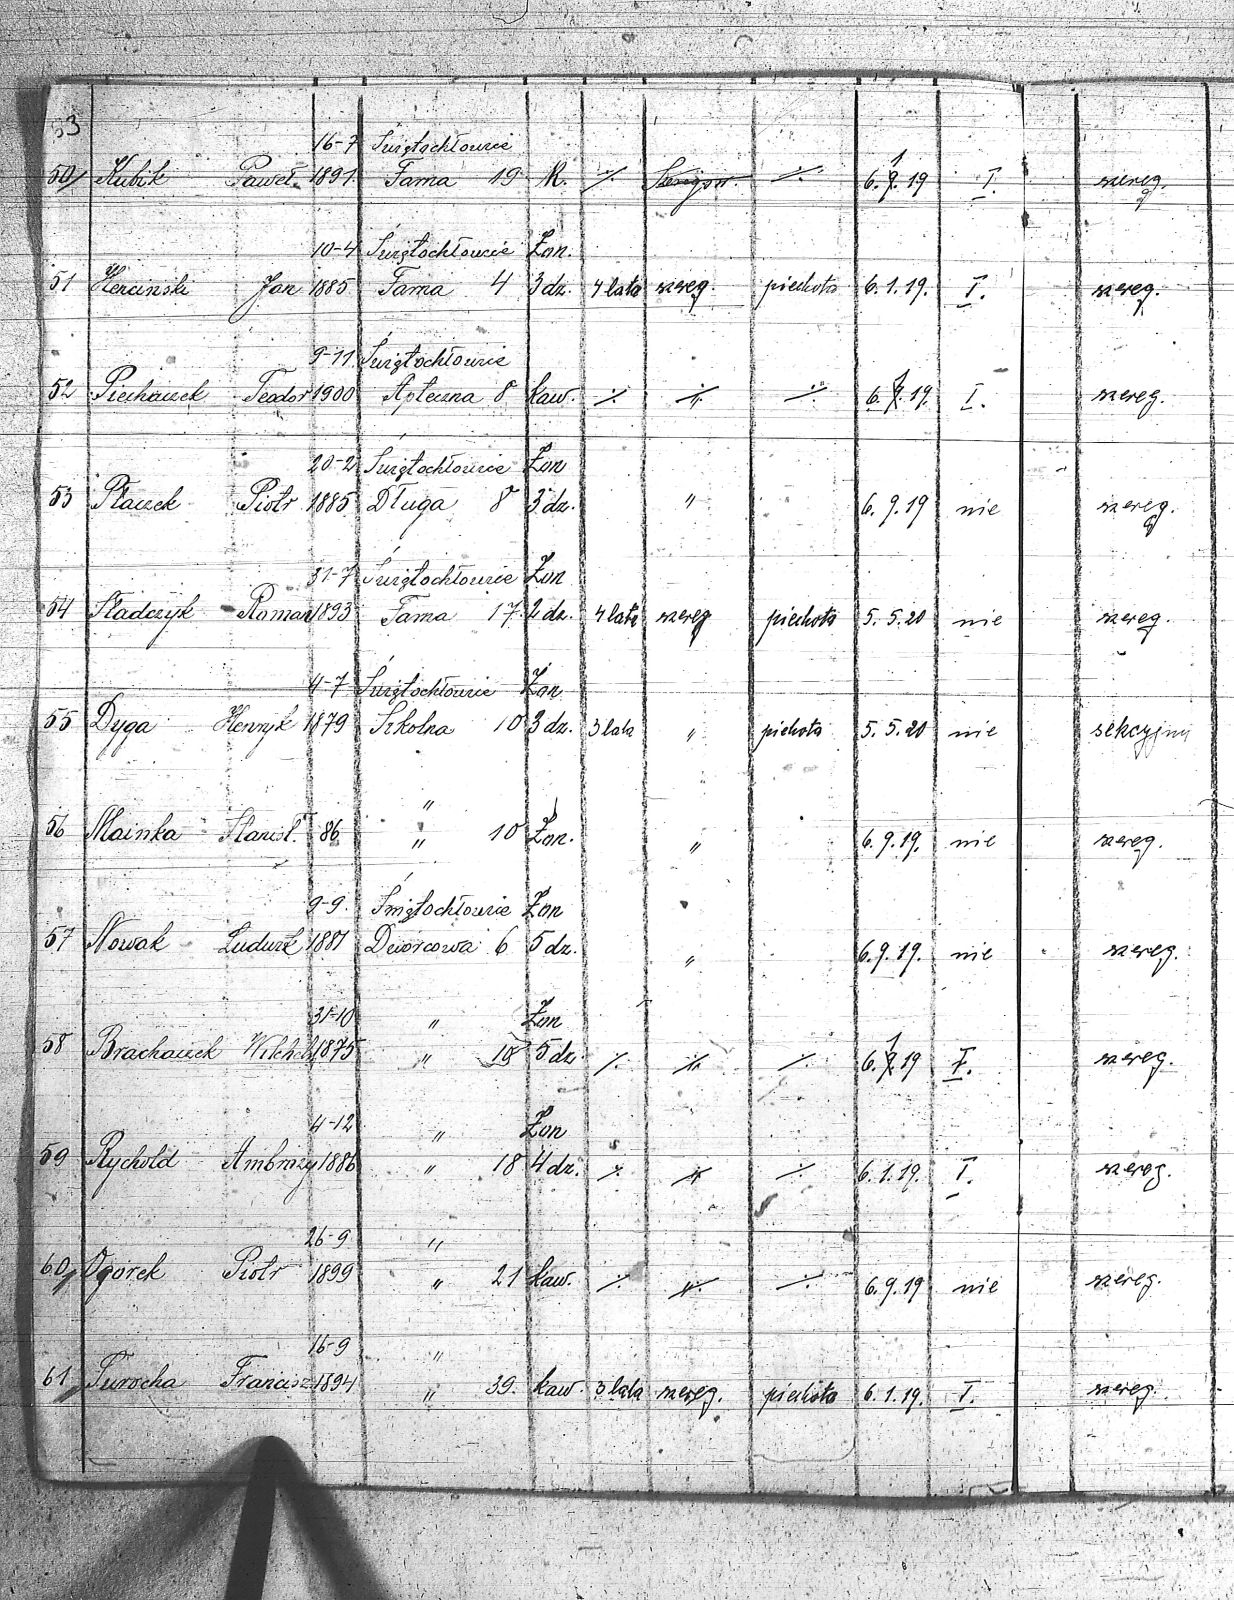 53
16-7 Świętochłowice
50/ Kubik Paweł. 1891. Fama 19 K. ·/· ·/· 6.1.19 I. szereg.
10-4 Świętochłowice Żon.
51 Herciński Jan 1885 Fama 4 3 dz. 4 lata szereg. piechota 6.1.19. I. szereg.
9-11. Świętochłowice
52 Piechaczek Teodor 1900 Apteczna 8 kaw. ·/· ·/· ·/· 6.1.19. I. szereg.
20-2 Świętochłowice Żon
53 Płaczek Piotr 1885 Długa 8 3 dz. " 6.9.19 nie szereg.
31-7 Świętochłowice Żon
54 Sladczyk Roman 1893 Fama 17. 2 dz. 4 lata szereg piechota 5.5.20 nie szereg.
4-7 Świętochłowice Żon
55 Dyga Henryk 1879 Szkolna 10 3 dz. 3 lata " piechota 5.5.20 nie sekcyjny
"
56 Mainka Stanisł. 86 " 10 Żon. " 6.9.19. nie szereg.
9-9. Świętochłowice Żon
57 Nowak Ludwik 1881 Dworcowa 6 5 dz. " 6.9.19. nie szereg.
31-10 " Żon
58 Brachaczek 1875 " 18 5 dz. ·/· ·/· ·/· 6.1.19 I. szereg.
4-12 " Żon
59 Rychold Ambroży 1886 " 18 4 dz. ·/· ·/· ·/· 6.1.19. I. szereg.
26-9 "
60/ Ogórek Piotr 1899 " 21 kaw. ·/· ·/· ·/· 6.9.19 nie szereg.
16-9 "
61 Furocha Francisz. 1894 " 39. kaw. 3 lata szereg. piechota 6.1.19. I. szereg.